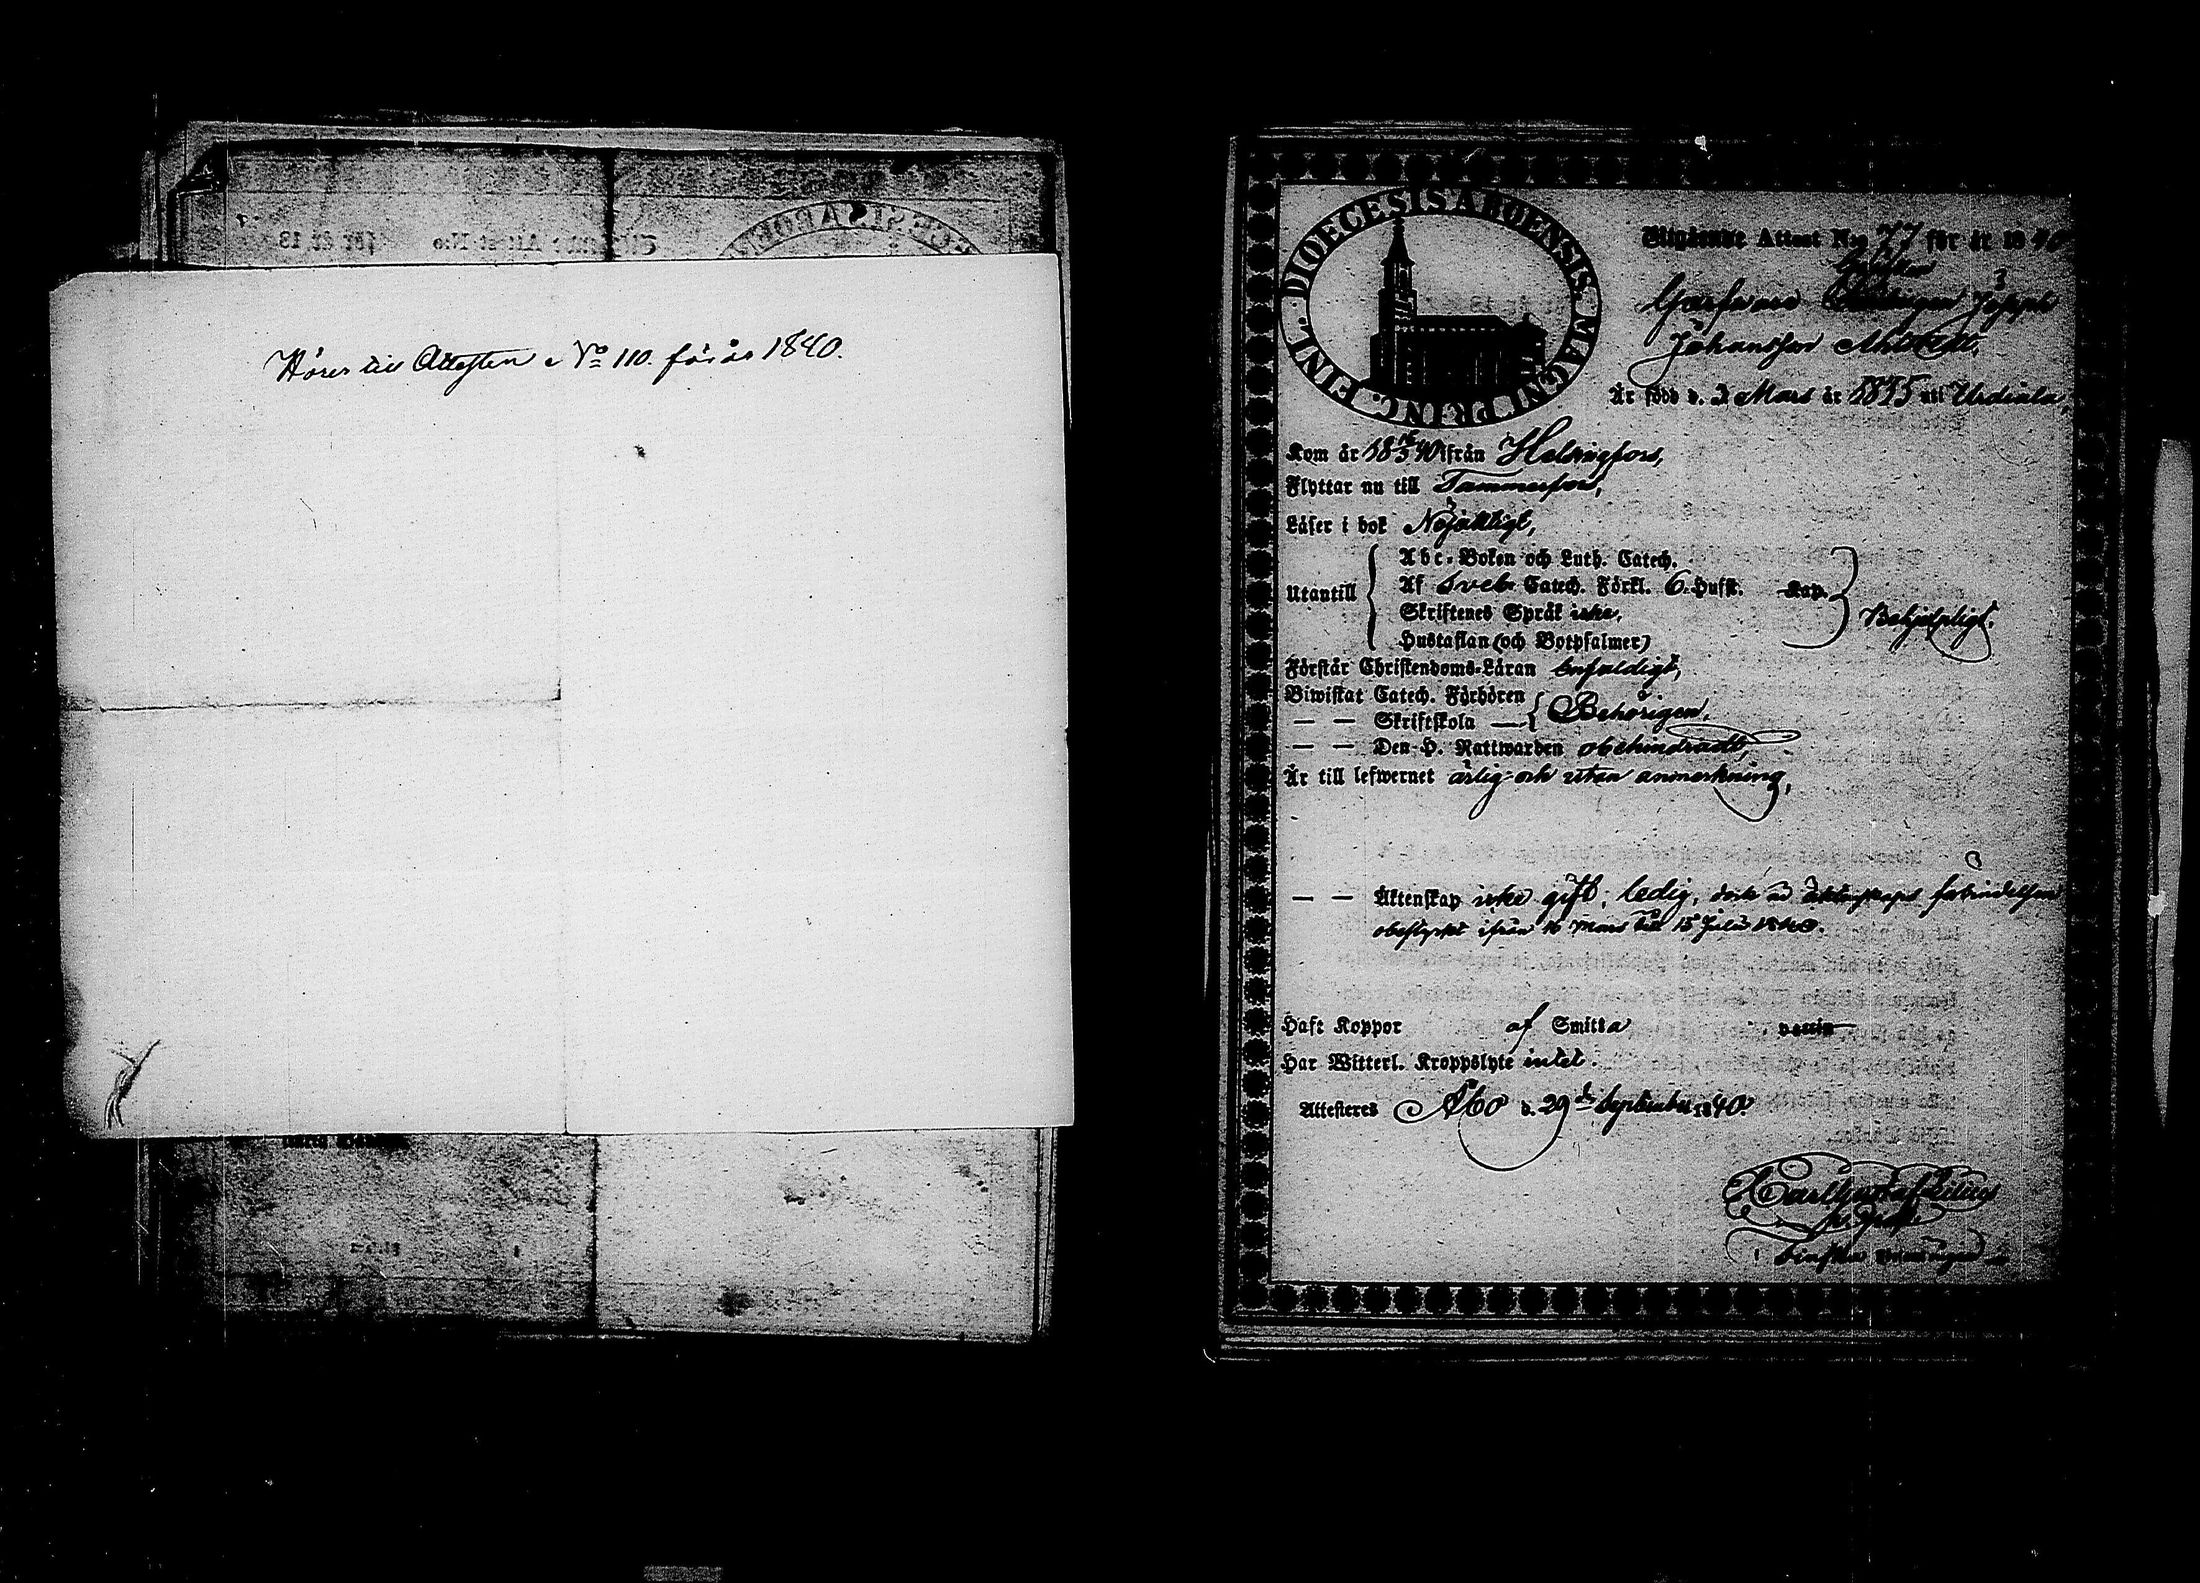 Hörer till Attesten No 110. för år 1840.
DIOECESIS ABOENSIS. MAGNI PRINC. FINL.
Utgående Attest N:o 77 för år 1840
Garfware
Johansson
Är född d. 3 Mars år 1815 uti Urdiala,
Kom år 18 16/3 40 ifrån Helsingfors,
Flyttar nu till Tammerfors,
Läser i bok Nöjaktigt,
Utantill
Abc-Boken och Luth. Catech.
Af Sveb. Catech. Förkl. 6. Hufst. Kap.
Skriftenes Språk icke,
Hustaflan (och Botpsalmer)
Behjelpligt.
Förstår Christendoms-Läran enfaldigt,
Biwistat Catech. Förhören
— — Skriftskola —
Behörigen,
— — Den H. Nattwarden obehindradt,
Är till lefwernet ärlig och utan anmerkning,
— — Äktenskap icke gift, ledig, dock är äktenskaps förbindelsen
obestyrkt ifrån 16 Mars till 15 Julii 1840.
Haft Koppor af Smitta vaccin
Har Witterl. Kroppslyte intet.
Attesteras Åbo d. 29de September 1840.
Carl Gustaf